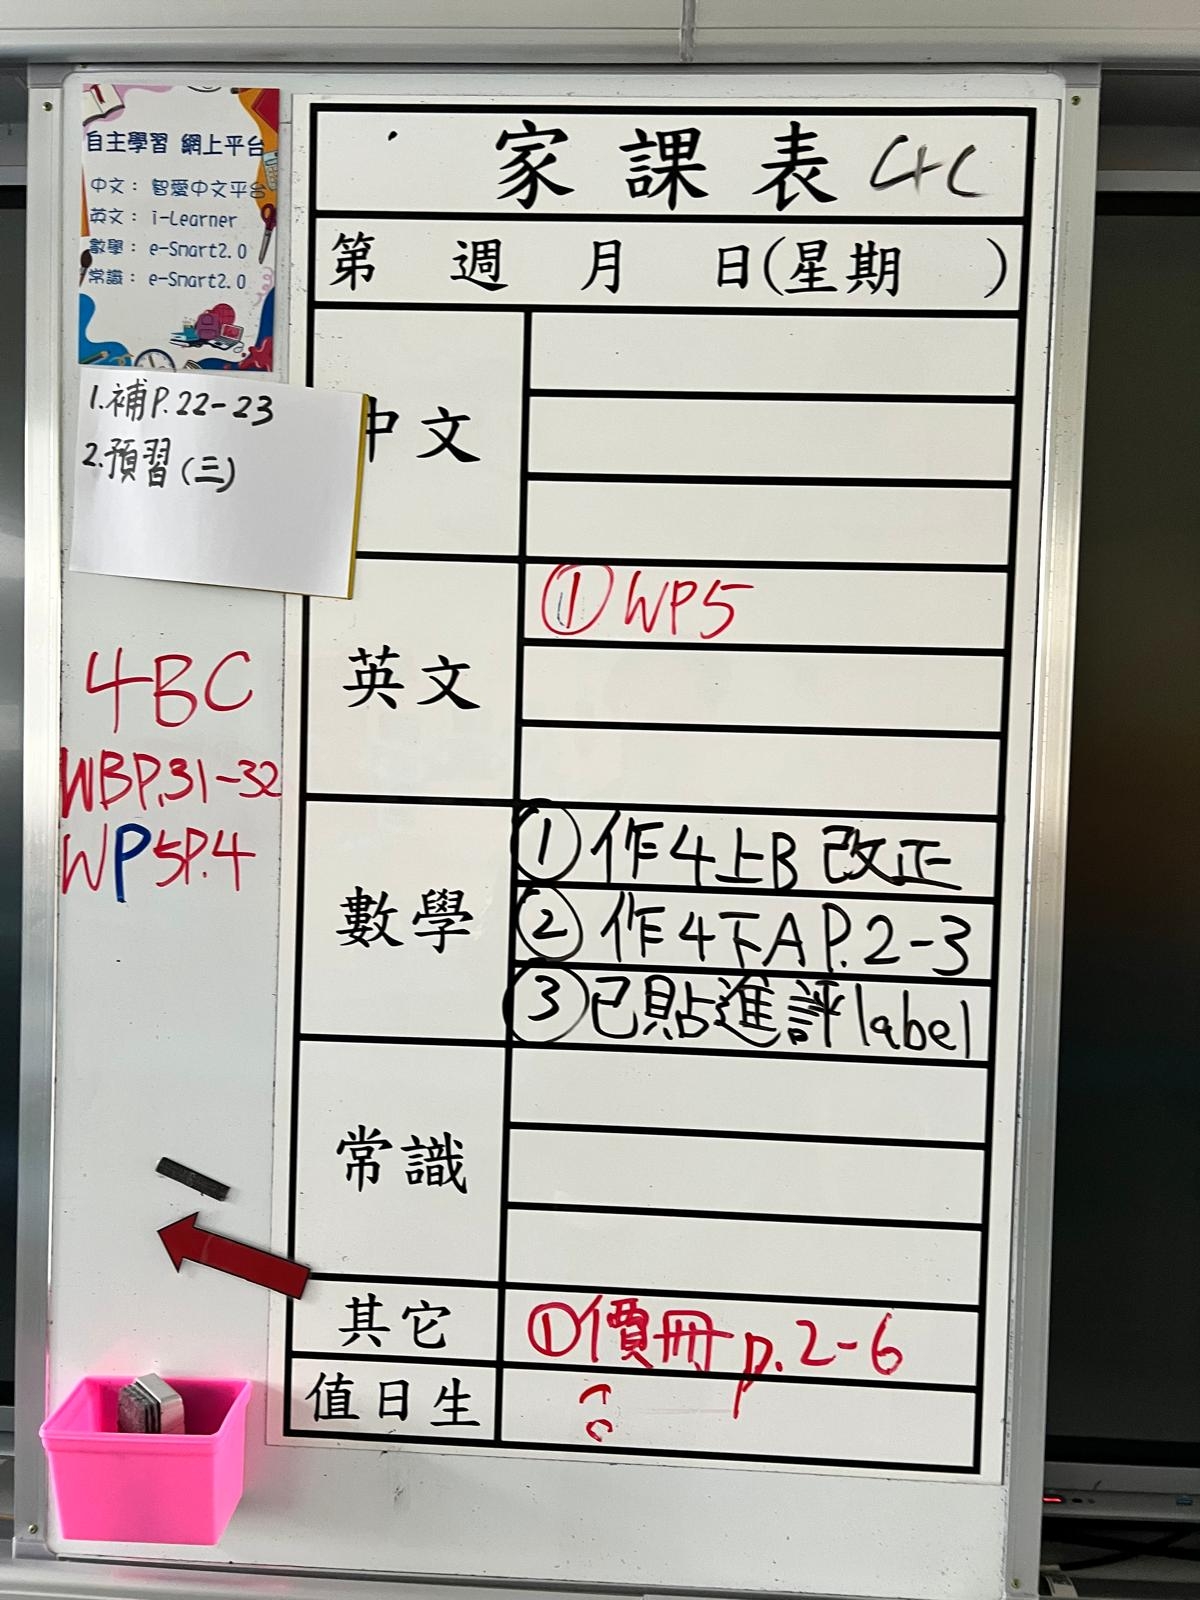 自主學習 網上平台
中文： 智愛中文平台
英文： i-Learner
數學： e-Smart2.0
常識： e-Smart2.0
1.補P.22-23
2.預習(三)
4BC
WBP.31-32
WP5P.4
家課表 4C
第 週 月 日(星期 )
中文
英文
① WP5
數學
① 作4上B 改正
② 作4下A P.2-3
③ 已貼進評label
常識
其它
① 價冊 p.2-6
值日生